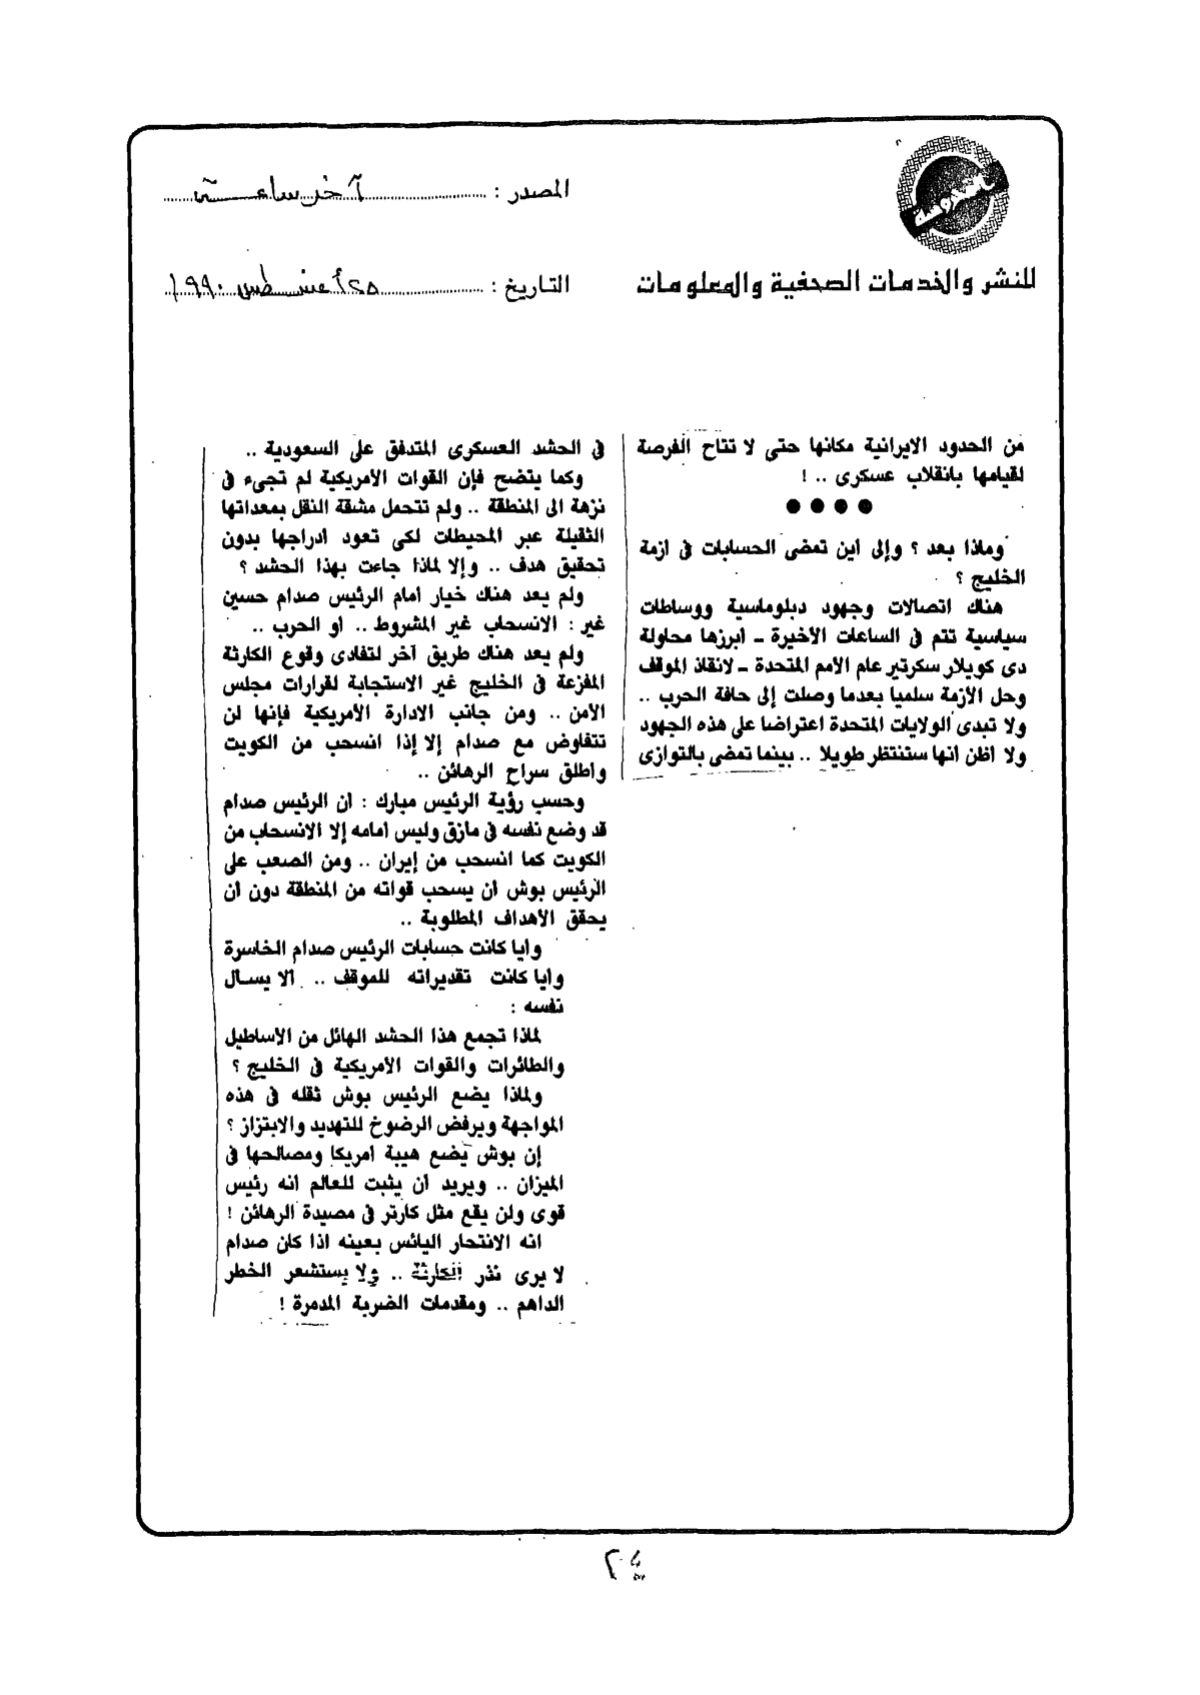 المصدر : آخر ساعة
للنشر والخدمات الصحفية والمعلومات
التاريخ : ٢٥ أغسطس ١٩٩٠
من الحدود الايرانية مكانها حتى لا تتاح الفرصة
لقيامها بانقلاب عسكرى .. !
● ● ● ●
وماذا بعد ؟ وإلى اين تمضى الحسابات فى ازمة
الخليج ؟
هناك اتصالات وجهود دبلوماسية ووساطات
سياسية تتم فى الساعات الأخيرة ـ ابرزها محاولة
دى كويلار سكرتير عام الأمم المتحدة ـ لانقاذ الموقف
وحل الأزمة سلميا بعدما وصلت إلى حافة الحرب ..
ولا تبدى الولايات المتحدة اعتراضا على هذه الجهود
ولا اظن انها ستنتظر طويلا .. بينما تمضى بالتوازى
فى الحشد العسكرى المتدفق على السعودية ..
وكما يتضح فإن القوات الأمريكية لم تجىء فى
نزهة الى المنطقة .. ولم تتحمل مشقة النقل بمعداتها
الثقيلة عبر المحيطات لكى تعود ادراجها بدون
تحقيق هدف .. وإلا لماذا جاءت بهذا الحشد ؟
ولم يعد هناك خيار امام الرئيس صدام حسين
غير : الانسحاب غير المشروط .. او الحرب ..
ولم يعد هناك طريق آخر لتفادى وقوع الكارثة
المفزعة فى الخليج غير الاستجابة لقرارات مجلس
الأمن .. ومن جانب الادارة الأمريكية فإنها لن
تتفاوض مع صدام إلا إذا انسحب من الكويت
واطلق سراح الرهائن ..
وحسب رؤية الرئيس مبارك : ان الرئيس صدام
قد وضع نفسه فى مازق وليس امامه إلا الانسحاب من
الكويت كما انسحب من إيران .. ومن الصعب على
الرئيس بوش ان يسحب قواته من المنطقة دون ان
يحقق الأهداف المطلوبة ..
وايا كانت حسابات الرئيس صدام الخاسرة
وايا كانت تقديراته للموقف .. الا يسال
نفسه :
لماذا تجمع هذا الحشد الهائل من الأساطيل
والطائرات والقوات الأمريكية فى الخليج ؟
ولماذا يضع الرئيس بوش ثقله فى هذه
المواجهة ويرفض الرضوخ للتهديد والابتزاز ؟
إن بوش يضع هيبة امريكا ومصالحها فى
الميزان .. ويريد ان يثبت للعالم انه رئيس
قوى ولن يقع مثل كارتر فى مصيدة الرهائن !
انه الانتحار اليائس بعينه اذا كان صدام
لا يرى نذر الكارثة .. ولا يستشعر الخطر
الداهم .. ومقدمات الضربة المدمرة !